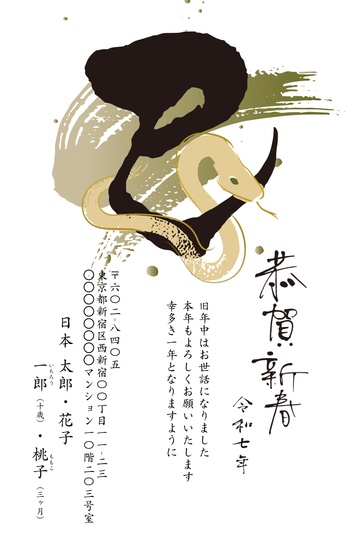 巳
恭賀新春
令和七年
旧年中はお世話になりました
本年もよろしくお願いいたします
幸多き一年となりますように
〒六〇二-八四〇五
東京都新宿区西新宿〇〇丁目一一-二三
〇〇〇〇〇〇〇〇マンション一〇階二〇三号室
日本 太郎・花子
一郎（十歳）・桃子（三ヶ月）
いちろう ももこ